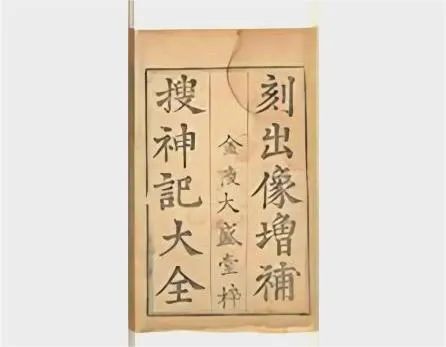 刻出像増補
金陵大盛堂梓
搜神記大全